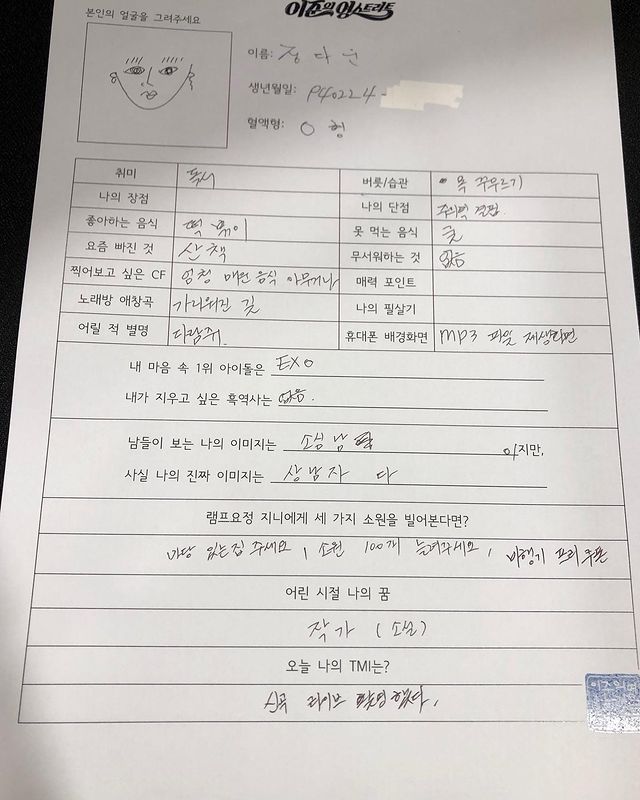 이준의 영스트리트
본인의 얼굴을 그려주세요
이름: 정다운
생년월일: 940224-
혈액형: O 형
취미 독서 버릇/습관 목 꾸우르기
나의 장점 나의 단점 주의력 결핍.
좋아하는 음식 떡볶이 못 먹는 음식 굴
요즘 빠진 것 산책 무서워하는 것 없음
찍어보고 싶은 CF 엄청 매운 음식 아무거나 매력 포인트
노래방 애창곡 가리워진 길 나의 필살기
어릴 적 별명 다람쥐. 휴대폰 배경화면 MP3 파일 재생화면
내 마음 속 1위 아이돌은 EXO
내가 지우고 싶은 흑역사는 없음.
남들이 보는 나의 이미지는 소심남 이지만,
사실 나의 진짜 이미지는 상남자 다
램프요정 지니에게 세 가지 소원을 빌어본다면?
마당 있는 집 주세요, 소원 100개 늘려주세요, 비행기 프리 쿠폰
어린 시절 나의 꿈
작가 (소설)
오늘 나의 TMI는?
신곡 라이브 했다.